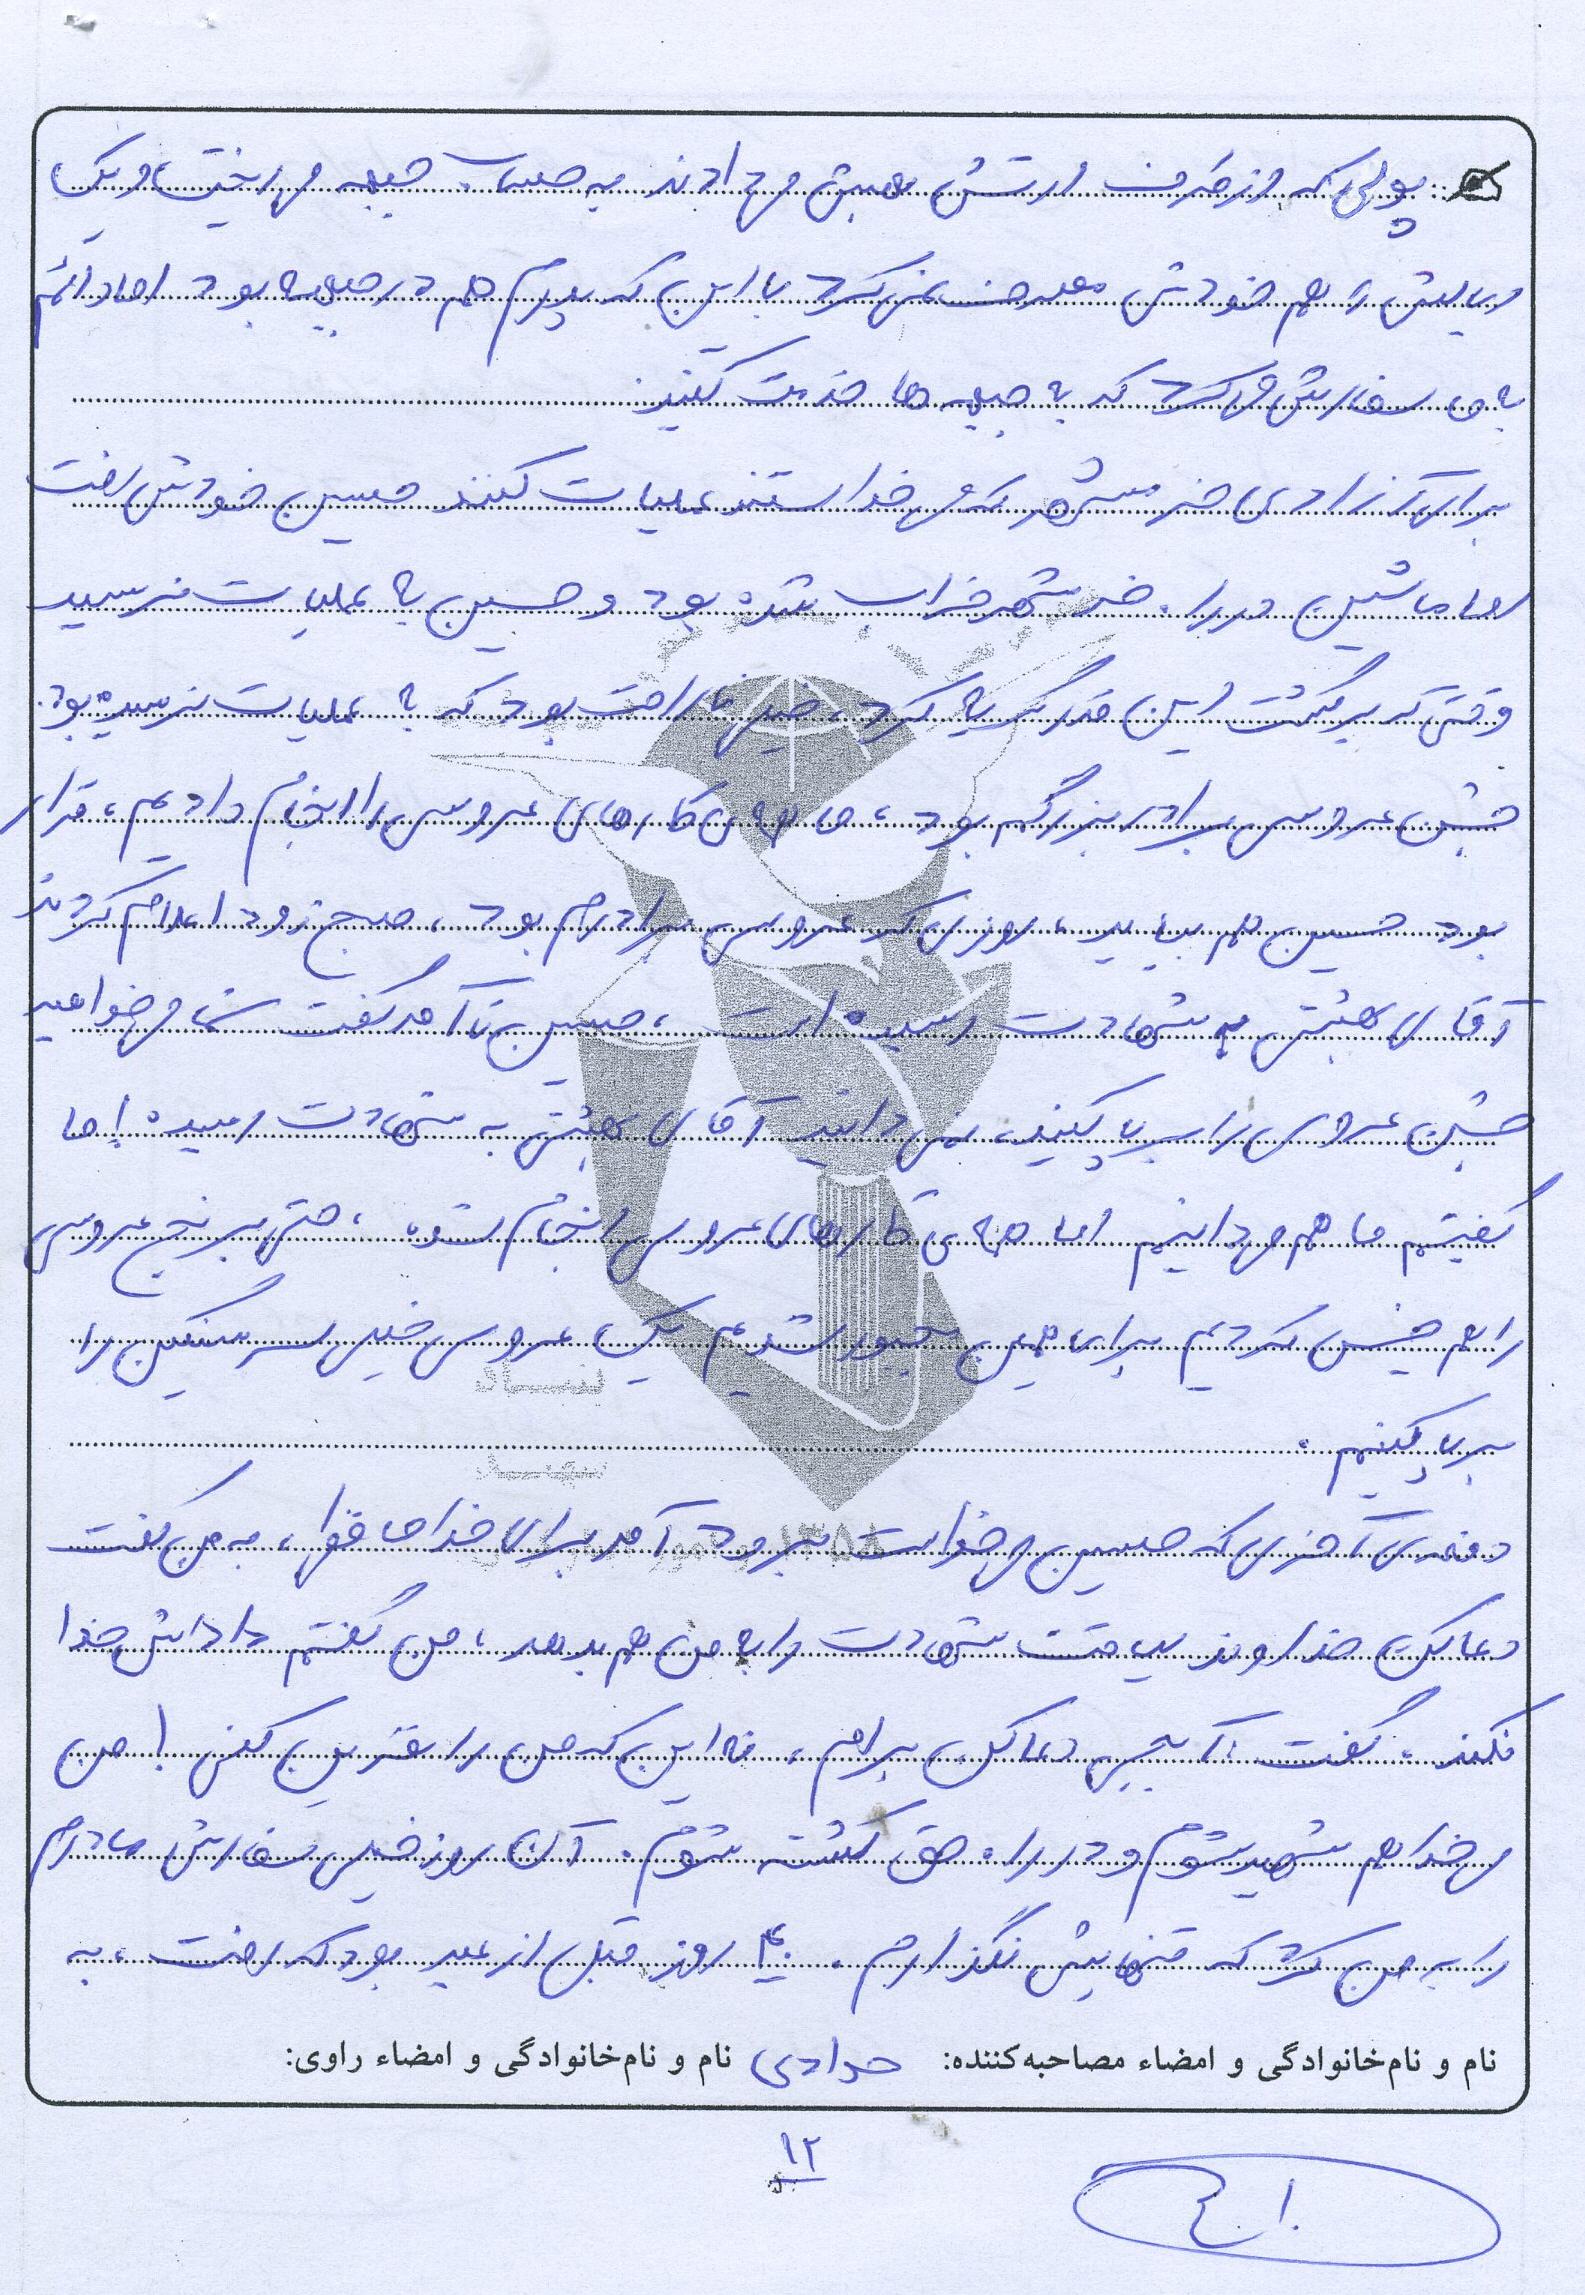 پولی که از طرف ارتش بهش می دادند به حساب جبهه می ریخت و یک
ریالش را هم خودش مصرف نمی کرد با این که پدرم هم در جبهه بود اما دائم
به ما سفارش می کرد که به جبهه ها خدمت کنید.
برای آزادی خرمشهر که می خواستند عملیات کنند حسین خودش رفت
اما ماشین در راه خرمشهر خراب شده بود و حسین به عملیات نرسید
وقتی که برگشت این قدر گریه کرد، خیلی ناراحت بود که به عملیات نرسیده بود.
جشن عروسی برادر بزرگم بود، ما همه ی کارهای عروسی را انجام دادیم، قرار
بود حسین هم بیاید، روزی که عروسی برادرم بود، صبح زود اعلام کردند
آقای بهشتی به شهادت رسیده است، حسین تا آمد گفت شما می خواهید
جشن عروسی را برپا کنید، نمی دانید آقای بهشتی به شهادت رسیده! ما
گفتیم ما هم می دانیم اما همه ی کارهای عروسی انجام شده، حتی برنج عروسی
را هم خیس کردیم برای همین مجبور شدیم یک عروسی خیلی سرسنگین را
برپا کنیم.
دفعه ی آخری که حسین می خواست برود آمد برای خداحافظی، به من گفت
دعا کن خداوند سعادت شهادت را به من هم بدهد، من گفتم داداش خدا
نکند. گفت آبجی دعا کن برام، نه این که من را نفرین کنی! من
می خواهم شهید شوم و در راه حق کشته شوم. آن روز خیلی سفارش مادرم
را به من کرد که تنهایش نگذارم. ۴۰ روز قبل از عید بود که رفت، به
نام و نام‌خانوادگی و امضاء مصاحبه‌کننده: حدادی نام و نام‌خانوادگی و امضاء راوی:
۱۲
بنیاد
شهید
۱۳۵۸